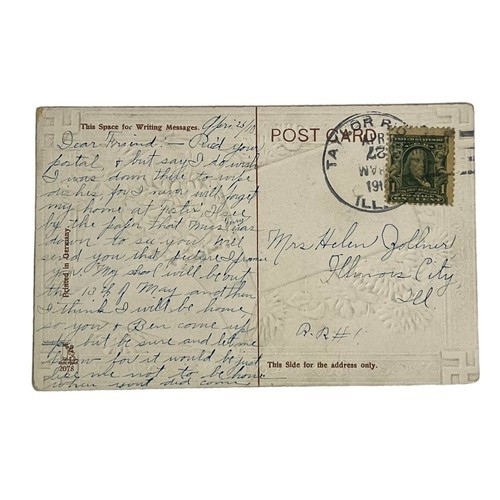 This Space for Writing Messages.
April 26/10
Dear Friend:- Rec'd your
postal & but say I do wish
I was down there to wipe
dishes, for I never will forget
my home at I see
by the paper that Miss was
down to see you. Will
send you that picture I promised
you. My school will be out
the 13th of May and then
I think I will be home
so you & Ben come up
but be sure and let me
know for it would be just
like me not to be home
when you did come
Printed in Germany.
2078
POST CARD
TAYLOR RIDGE
APR
27
AM
191
ILL.
1
Mrs Helen Zollner
Illinois City,
Ill
R.R.#1.
This Side for the address only.